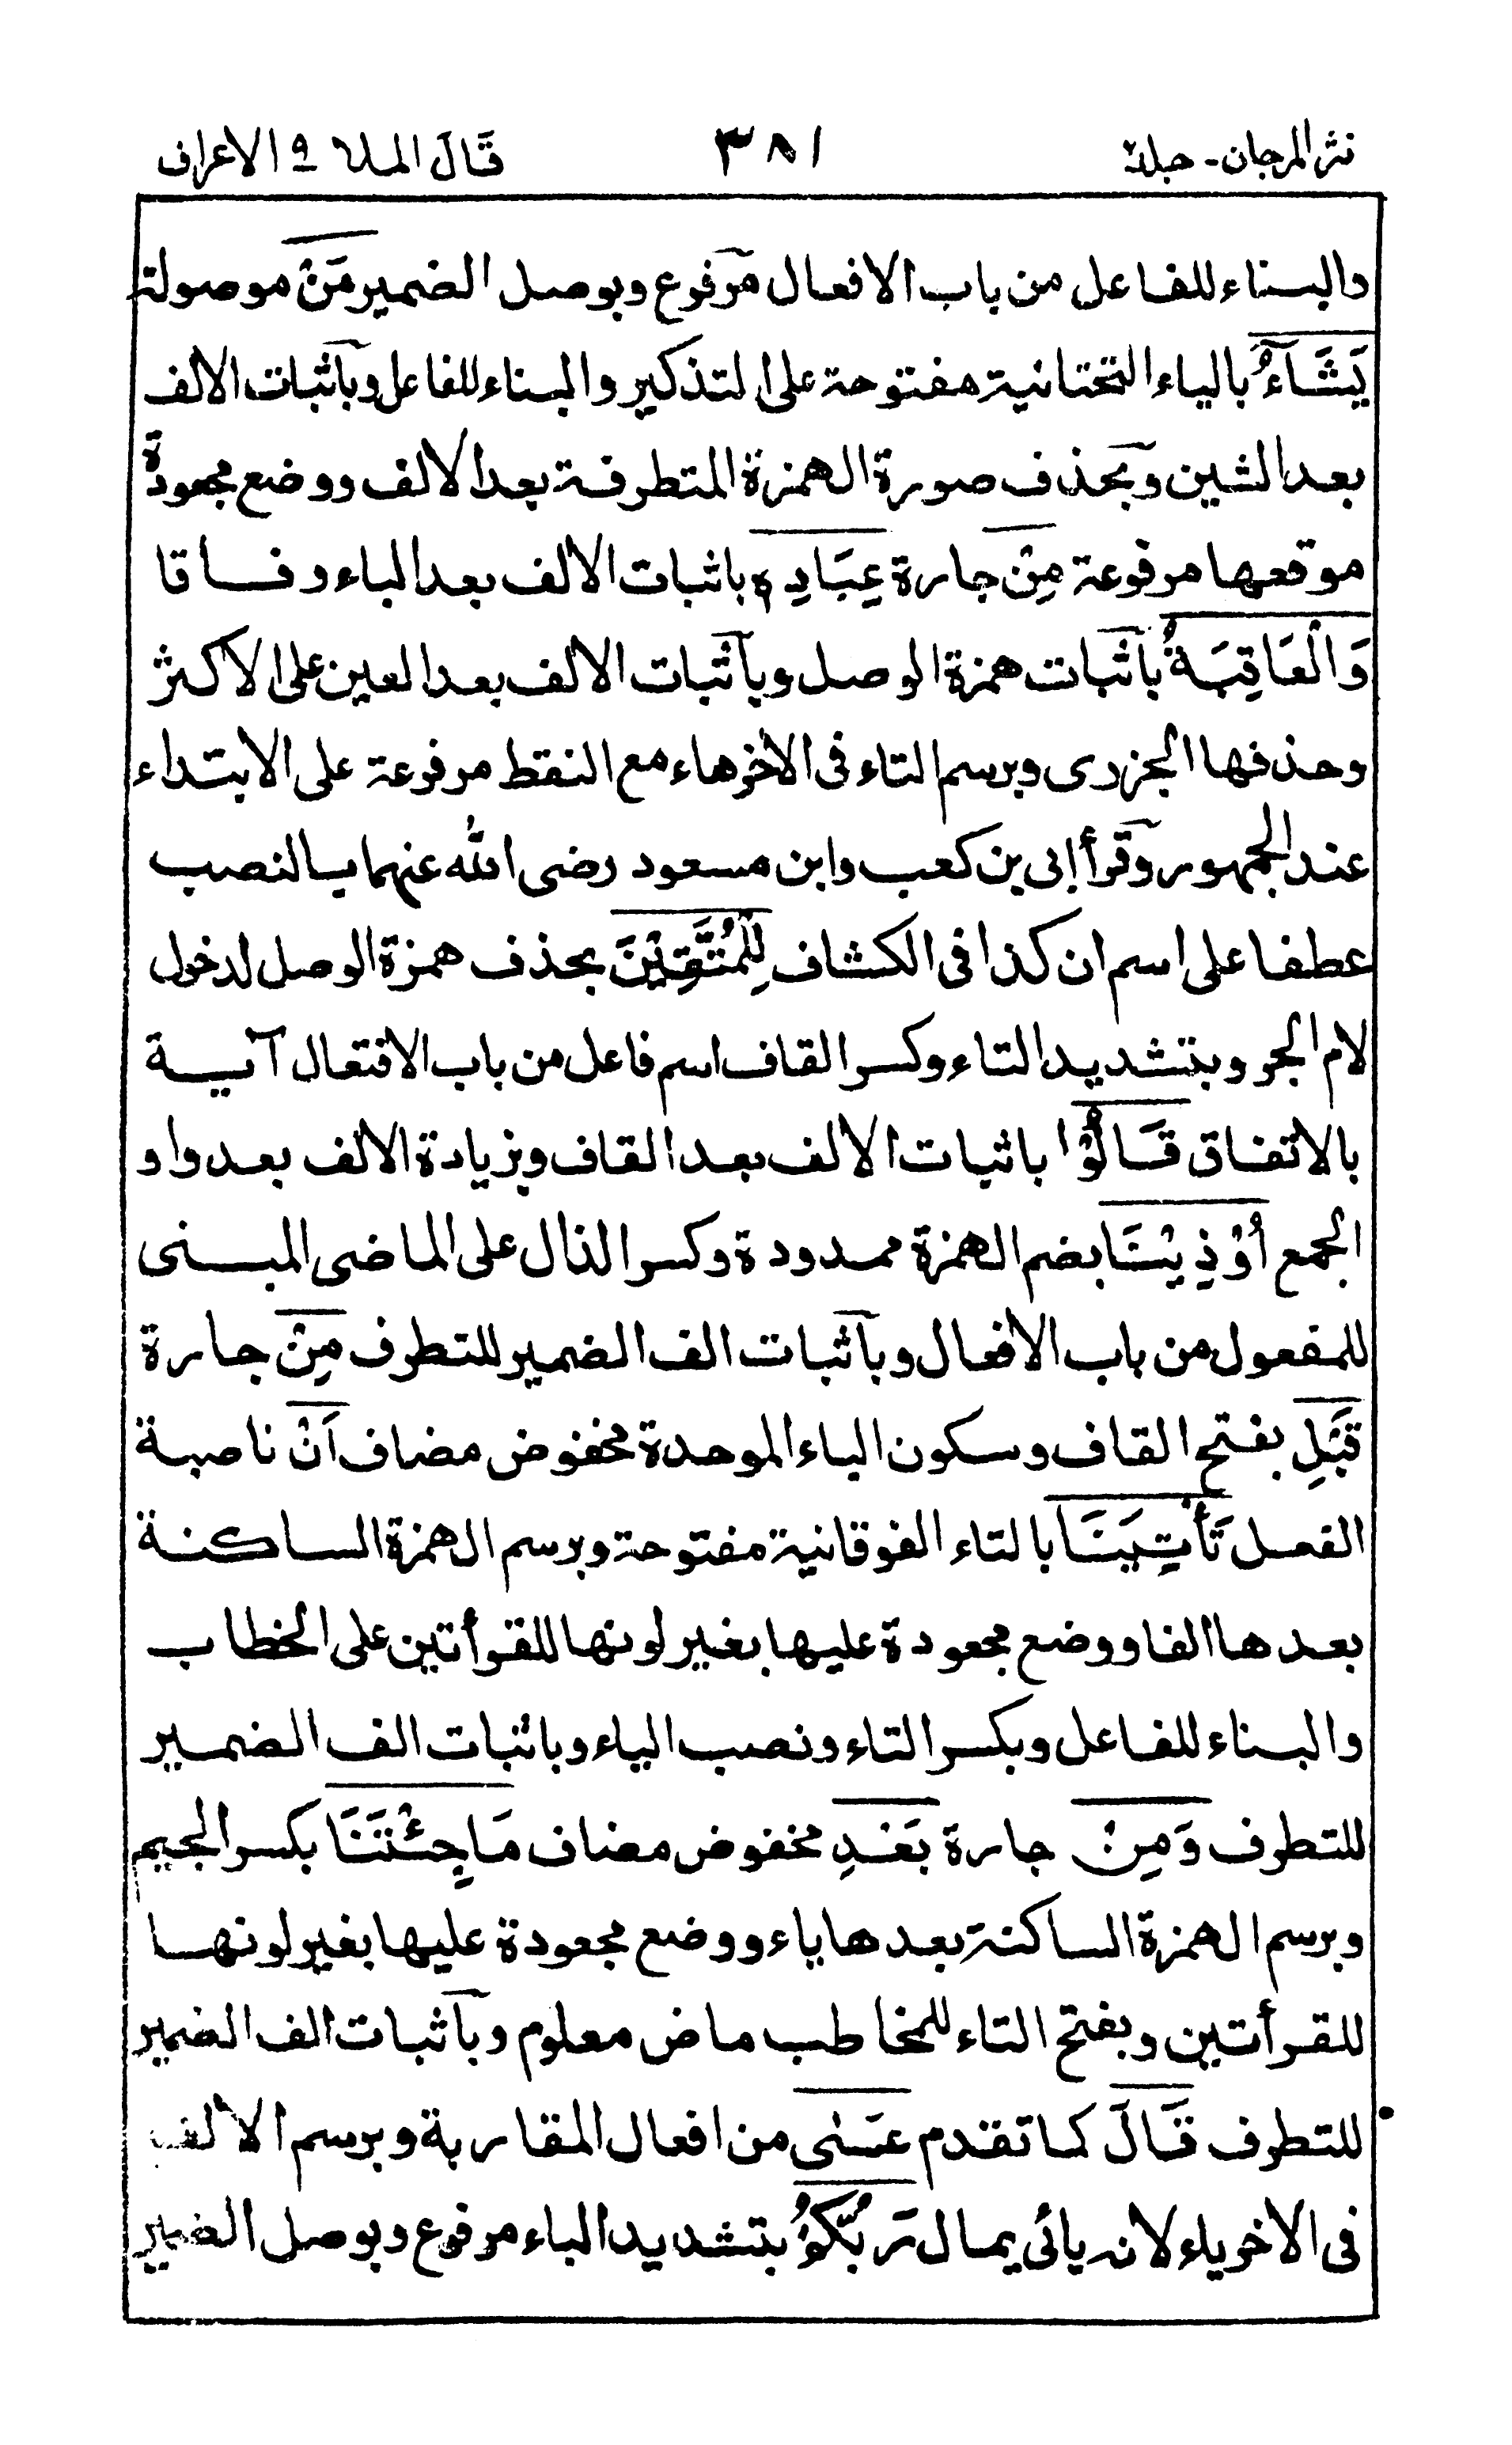 نثر المرجان - جلد٢ ٣٨١ قَالَ الملا ٩ الاعراف
والبناء للفاعل من باب الافعال مرفوع وبوصل الضمير مَنْ موصولة
يَشَآءُ بالياء التحتانية مفتوحة على التذكير والبناء للفاعل وباثبات الالف
بعد الشين وبحذف صورة الهمزة المتطرفة بعد الالف ووضع مجعودة
موقعها مرفوعة مِنْ جارة عِبَادِهٖ باثبات الالف بعد الباء وفاقا
وَالْعَاقِبَةُ باثبات همزة الوصل وباثبات الالف بعد العين على الاكثر
وحذفها الجزرى وبرسم التاء فى الاخر هاء مع النقط مرفوعة على الابتداء
عند الجمهور وقرأ ابى بن كعب وابن مسعود رضى الله عنهما بالنصب
عطفا على اسم ان كذا فى الكشاف لِلْمُتَّقِيْنَ بحذف همزة الوصل لدخول
لام الجر وبتشديد التاء وكسر القاف اسم فاعل من باب الافتعال آية
بالاتفاق قَالُوْا باثبات الالف بعد القاف وبزيادة الالف بعد واو
الجمع اُوْذِيْنَا بضم الهمزة ممدودة وكسر الذال على الماضى المبنى
للمفعول من باب الافعال وباثبات الف الضمير للتطرف مِنْ جارة
قَبْلِ بفتح القاف وسكون الباء الموحدة مخفوض مضاف اَنْ ناصبة
الفعل تَأْتِيَنَا بالتاء الفوقانية مفتوحة وبرسم الهمزة الساكنة
بعدها الفا ووضع مجعودة عليها بغير لونها للقرأتين على الخطاب
والبناء للفاعل وبكسر التاء ونصب الياء وباثبات الف الضمير
للتطرف وَمِنْ جارة بَعْدِ مخفوض مضاف مَا جِئْتَنَا بكسر الجيم
وبرسم الهمزة الساكنة بعدها ياء ووضع مجعودة عليها بغير لونها
للقرأتين وبفتح التاء للمخاطب ماض معلوم وباثبات الف الضمير
للتطرف قَالَ كما تقدم عَسٰى من افعال المقاربة وبرسم الالف
فى الاخر ياء لانه يائى يمال رَبُّكُمْ بتشديد الباء مرفوع وبوصل الضمير